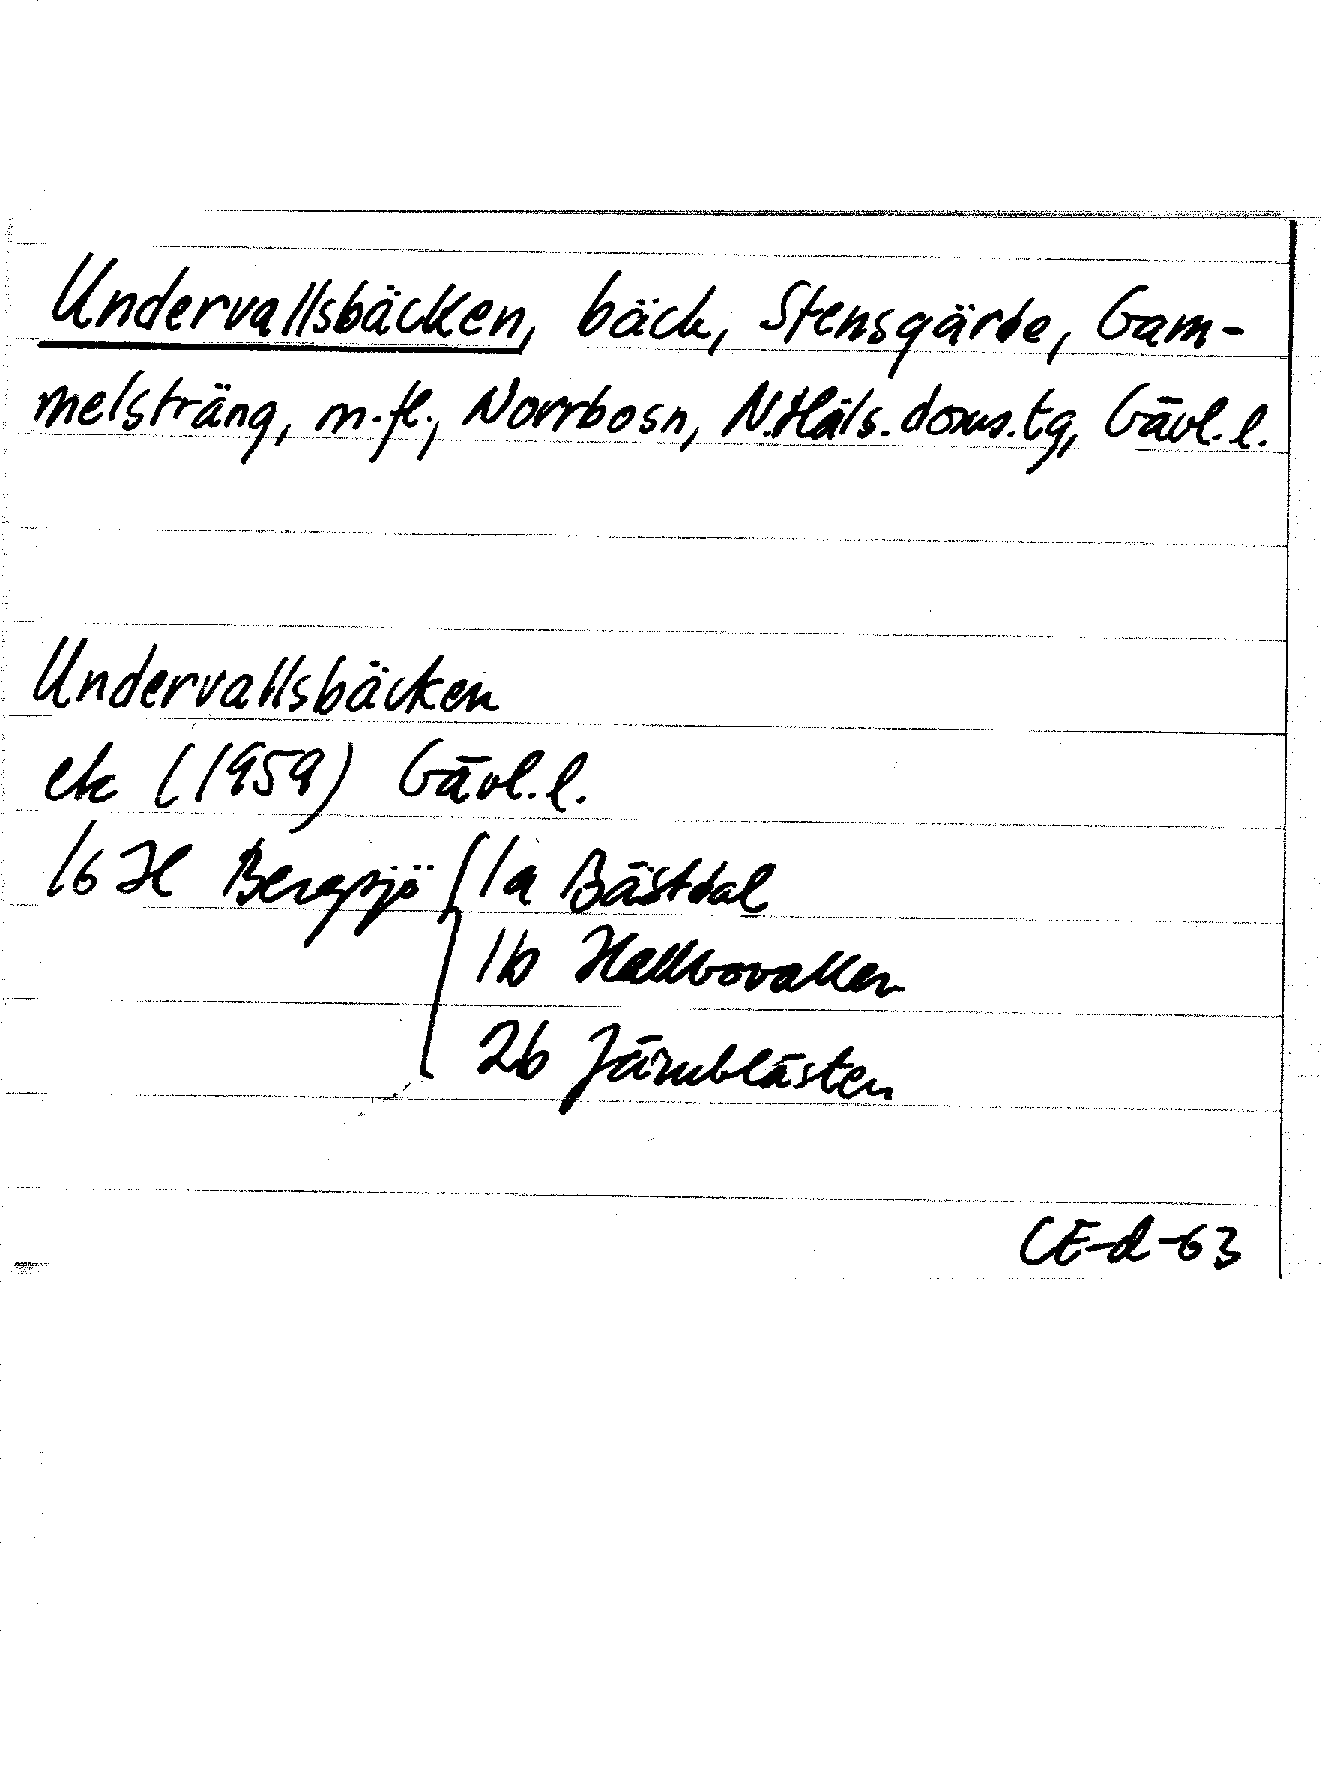 Undervallsbäcken, bäck, Stensgärde, Gam-
melsträng, m.fl., Norrbosn, N.Häls.doms.tg, Gävl.l.
Undervallsbäcken
ek (1959) Gävl.l.
16 H Bergsjö { 1a Bästdal
1b Hallbovallen
2b Järnblästen
CE-d-63